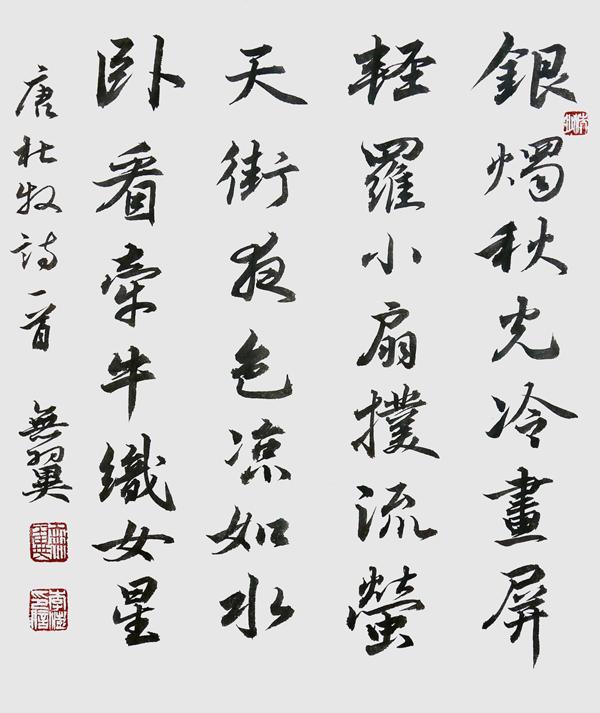 銀燭秋光冷畫屏
輕羅小扇撲流螢
天街夜色涼如水
卧看牽牛織女星
唐杜牧詩一首 無翼